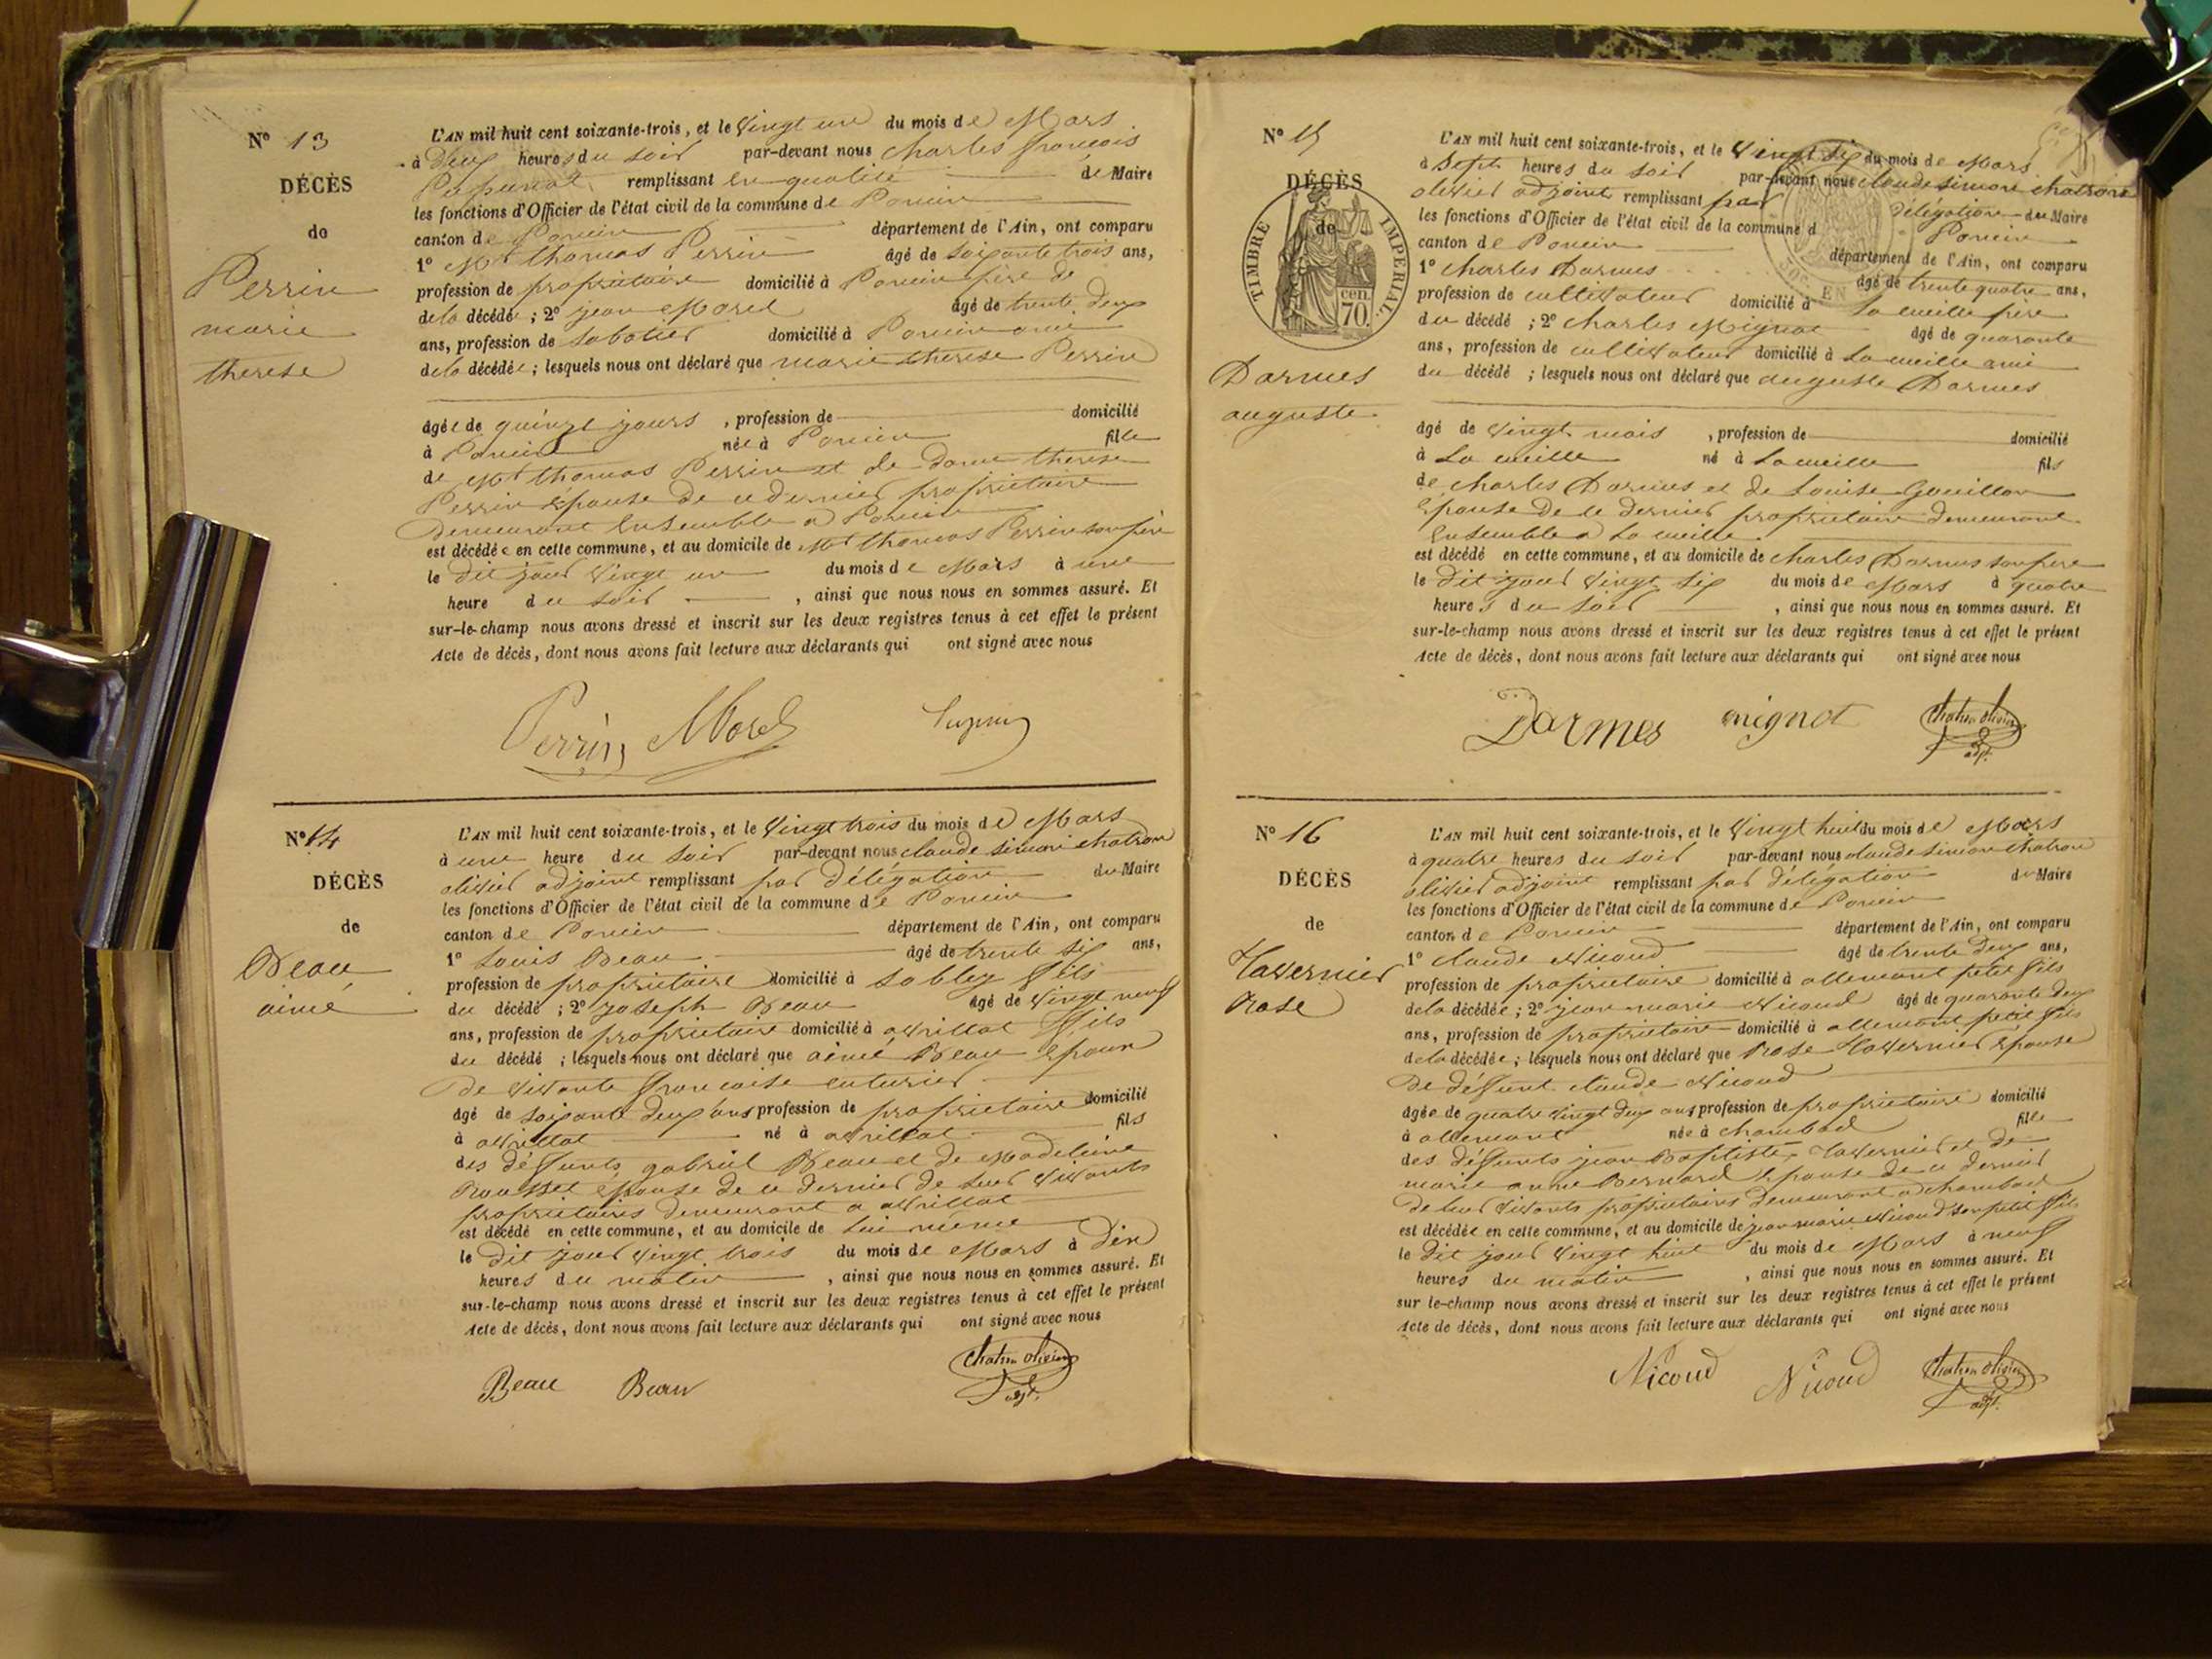 N° 13
DÉCÈS
de
Perrin
marie
therese
L'AN mil huit cent soixante-trois, et le vingt un du mois de Mars
à deux heures du soir par-devant nous charles françois
remplissant en qualité de Maire
les fonctions d'Officier de l'état civil de la commune de Poncin
canton de Poncin département de l'Ain, ont comparu
1° Mr thomas Perrin âgé de soixante trois ans,
profession de propriétaire domicilié à Poncin père de
de la décédée ; 2° jean Morel âgé de trente deux
ans, profession de sabotier domicilié à Poncin ami
de la décédée ; lesquels nous ont déclaré que marie therese Perrin
âgée de quinze jours , profession de domicilié
à Poncin née à Poncin fille
de Mr thomas Perrin et de dame therese
Perrin épouse de ce dernier propriétaire
demeurant ensemble a Poncin
est décédée en cette commune, et au domicile de Mr thomas Perrin son père
le dit jour vingt un du mois de Mars à une
heure du soir , ainsi que nous nous en sommes assuré. Et
sur-le-champ nous avons dressé et inscrit sur les deux registres tenus à cet effet le présent
Acte de décès, dont nous avons fait lecture aux déclarants qui ont signé avec nous
Perrin Morel
N° 14
DÉCÈS
de
Beau
aimé
L'AN mil huit cent soixante-trois, et le vingt trois du mois de Mars
à une heure du soir par-devant nous claude simon chatron
olivier adjoint remplissant par délégation du Maire
les fonctions d'Officier de l'état civil de la commune de Poncin
canton de Poncin département de l'Ain, ont comparu
1° Louis Beau âgé de trente six ans,
profession de propriétaire domicilié à Lebley fils
du décédé ; 2° joseph Beau âgé de vingt neuf
ans, profession de propriétaire domicilié à avrillat fils
du décédé ; lesquels nous ont déclaré que aimé Beau époux
de vivante françoise cuturier
âgé de soixante deux ans profession de propriétaire domicilié
à avrillat né à avrillat fils
des défunts gabriel Beau et de Madeleine
Rousset épouse de ce dernier de leur vivants
propriétaires demeurant a avrillat
est décédé en cette commune, et au domicile de lui même
le dit jour vingt trois du mois de Mars à dix
heures du matin , ainsi que nous nous en sommes assuré. Et
sur-le-champ nous avons dressé et inscrit sur les deux registres tenus à cet effet le présent
Acte de décès, dont nous avons fait lecture aux déclarants qui ont signé avec nous
Beau Beau chatron olivier
adjt.
N° 15
DÉCÈS
de
TIMBRE IMPERIAL
70 cen.
Darmes
auguste
L'AN mil huit cent soixante-trois, et le vingt six du mois de Mars
à sept heures du soir par-devant nous claude simon chatron
olivier adjoint remplissant par délégation du Maire
les fonctions d'Officier de l'état civil de la commune d Poncin
canton de Poncin département de l'Ain, ont comparu
1° charles Darmes âgé de trente quatre ans,
profession de cultivateur domicilié à La cueille père
du décédé ; 2° charles Mignot âgé de quarante
ans, profession de cultivateur domicilié à La cueille ami
du décédé ; lesquels nous ont déclaré que auguste Darmes
âgé de vingt mois , profession de domicilié
à La cueille né à La cueille fils
de charles Darmes et de Louise Gouillon
épouse de ce dernier propriétaire demeurant
ensemble a La cueille.
est décédé en cette commune, et au domicile de charles Darmes son père
le dit jour vingt six du mois de Mars à quatre
heures du soir , ainsi que nous nous en sommes assuré. Et
sur-le-champ nous avons dressé et inscrit sur les deux registres tenus à cet effet le présent
Acte de décès, dont nous avons fait lecture aux déclarants qui ont signé avec nous
Darmes mignot chatron olivier
adjt.
N° 16
DÉCÈS
de
Tavernier
Rose
L'AN mil huit cent soixante-trois, et le vingt huit du mois de Mars
à quatre heures du soir par-devant nous claude simon chatron
olivier adjoint remplissant par délégation du Maire
les fonctions d'Officier de l'état civil de la commune de Poncin
canton de Poncin département de l'Ain, ont comparu
1° claude Nicoud âgé de trente deux ans,
profession de propriétaire domicilié à allement petit fils
de la décédée ; 2° jean marie Nicoud âgé de quarante deux
ans, profession de propriétaire domicilié à allement petit fils
de la décédée ; lesquels nous ont déclaré que Rose Tavernier épouse
de défunt claude Nicoud
âgée de quatre vingt deux ans profession de propriétaire domicilié
à allement née à chambod fille
des défunts jean Baptiste Tavernier et de
marie anne Bernard épouse de ce dernier
de leur vivants propriétaires demeurant a chambod
est décédée en cette commune, et au domicile de jean marie Nicoud son petit fils
le dit jour vingt huit du mois de Mars à neuf
heures du matin , ainsi que nous nous en sommes assuré. Et
sur le-champ nous avons dressé et inscrit sur les deux registres tenus à cet effet le présent
Acte de décès, dont nous avons fait lecture aux déclarants qui ont signé avec nous
Nicoud Nicoud chatron olivier
adjt.